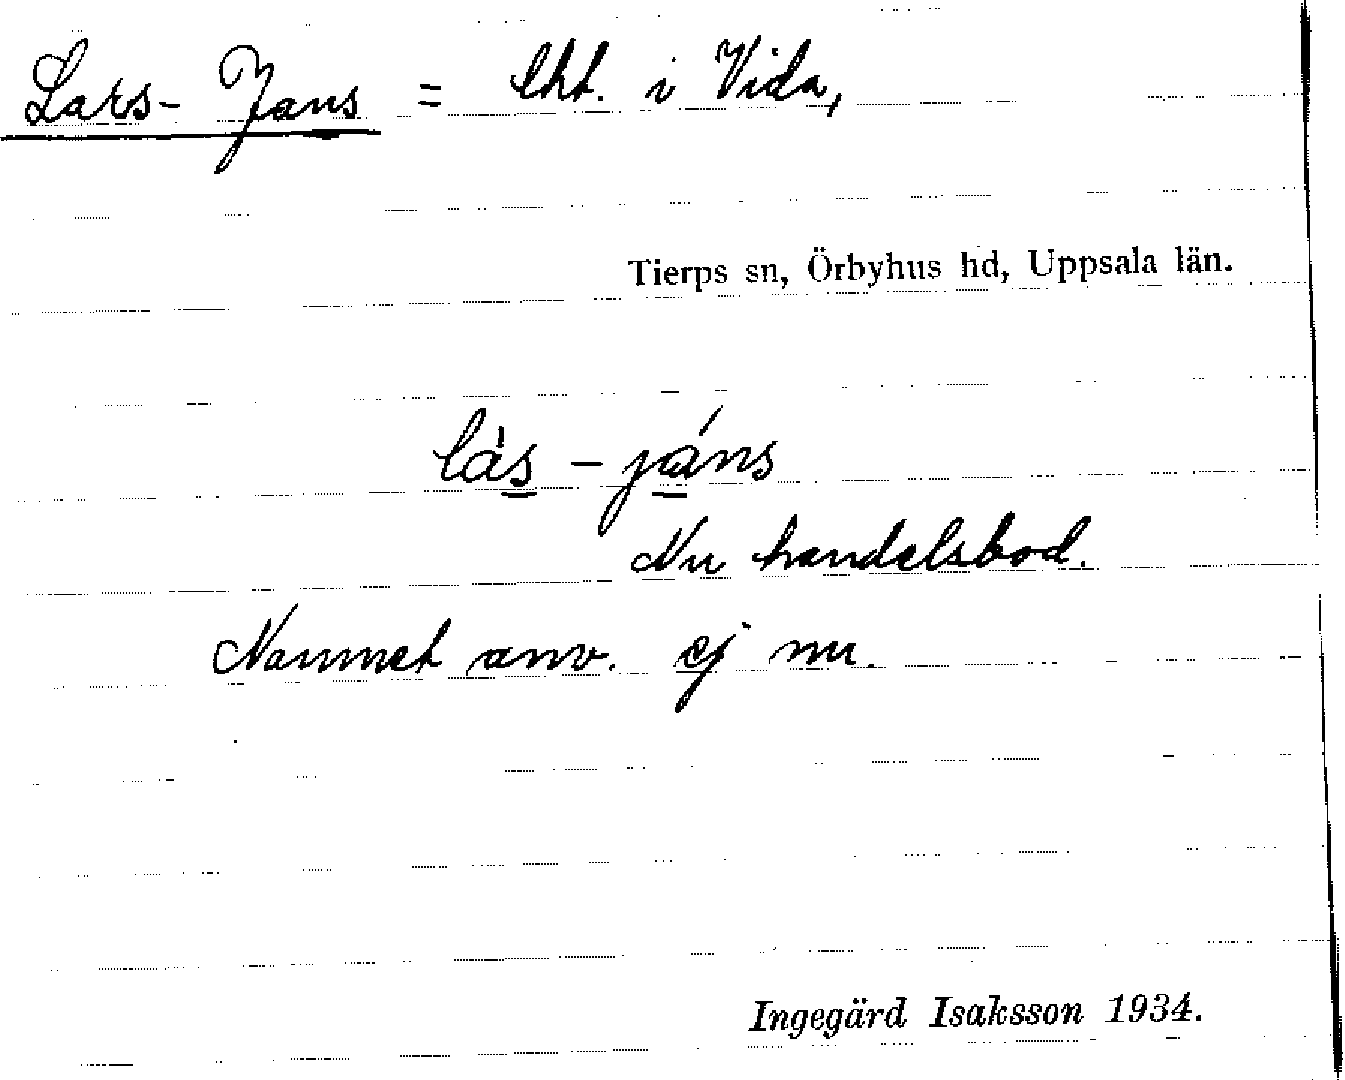 Lars-Jans = lht. i Vida,
Tierps sn, Örbyhus hd, Uppsala län.
làs - jáns
Nu handelsbod.
Namnet anv. ej nu.
Ingegärd Isaksson 1934.